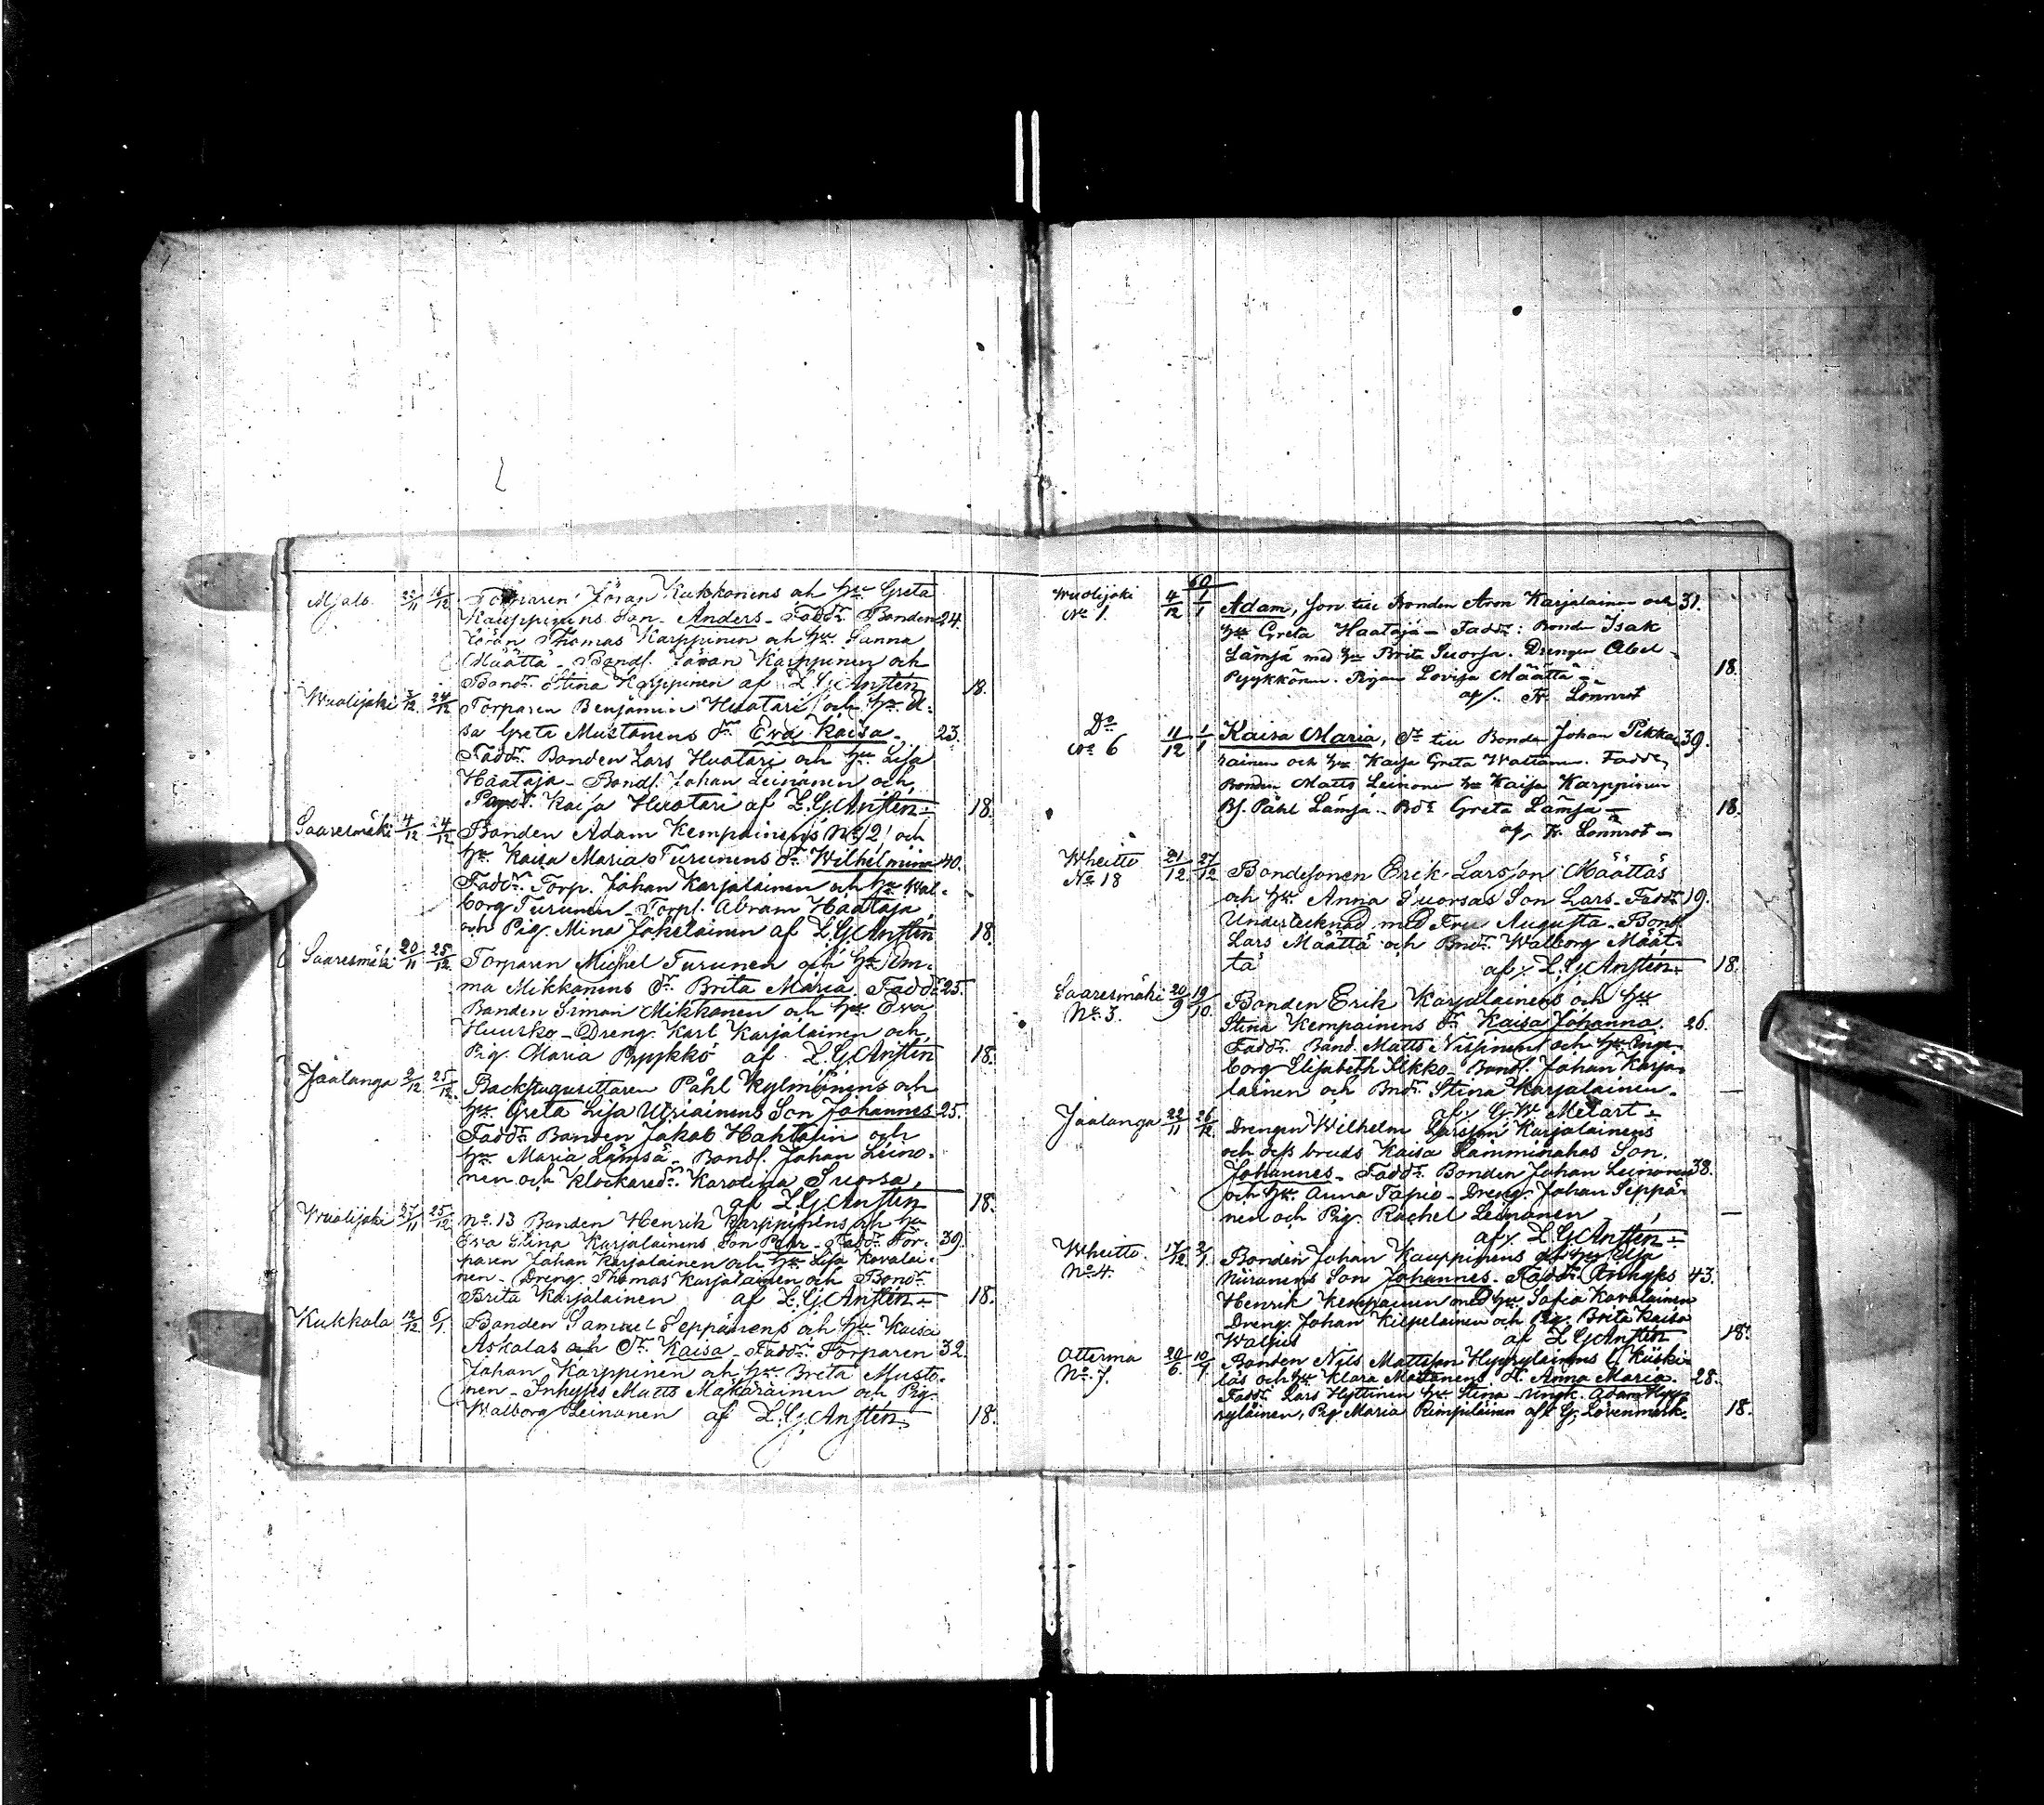 Mjalo 22/11 16/12 Torparen Jöran Kukkonens och Hu Greta
Kauppinens Son Anders - Faddr Bonden 24.
Jöran Thomas Karppinen och Hu Sanna
Määttä - Bonds. Jöran Karppinen och
Bondr Stina Karppinen af L. G. Anstén 18.
Wuolijoki 3/12 24/12 Torparen Benjamin Huotari och Hu El-
sa Greta Mustonens dr Eva Kaisa - 23.
Faddr Bonden Lars Huotari och Hu Lisa
Haataja - Bonds. Johan Leinonen och
Kaisa Huotari af L. G. Anstén - 18.
Saaresmäki 4/12 24/12 Bonden Adam Kempainens No 12 och
Hu Kaisa Maria Turunens dr Wilhelmina 40.
Faddr Torp. Johan Karjalainen och Hu Wal-
borg Turunen - Torps. Abram Haataja
och Pig. Mina Jokelainen af L. G. Anstén 18.
Saaresmäki 20/11 25/12 Torparen Michel Turunen och Hu Em-
ma Mikkonens dr Brita Maria Faddr 25.
Bonden Simon Mikkonen och Hu Eva
Huusko - Dreng. Karl Karjalainen och
Pig. Maria Pyykkö af L. G. Anstén 18.
Jaalanga 9/12 25/12 Backstugusittaren Påhl Kylmänens och
Hu Greta Lisa Utriainens Son Johannes 25.
Faddr Bonden Jakob Hahtalin och
Hu Maria Lämsä - Bonds. Johan Leino-
nen och Klockaredr Karolina Suorsa,
af L. G. Anstén 18.
Wuolijoki 27/11 25/12 No 13 Bonden Henrik Karppinens och Hu
Eva Stina Karjalainens Son Pehr - Faddr Tor- 39.
paren Johan Karjalainen och Hu Lisa Kovalai-
nen - Dreng. Thomas Karjalainen och Bondr
Brita Karjalainen af L. G. Anstén - 18.
Kukkola 12/12 6/1 Bonden Samuel Seppänens och Hu Kaisa
Askalas och dr Kaisa - Faddr Torparen 32.
Johan Karppinen och Hu Brita Musto-
nen - Inhyses Matts Makaräinen och Pig.
Walborg Leinonen af L. G. Anstén 18.
60
Wuolijoki 4/12 1/1 Adam, Son till Bonden Aron Karjalainen och 31.
No 1. Hu Greta Haataja - Faddr: Bonden Isak
Lämsä med Hu Brita Suorsa. Drengen Abel
Pyykkönen. Pigan Lovisa Määttä - 18.
af Fr. Lönnrot
Do 11/12 1/1 Kaisa Maria, dr till Bonden Johan Pikka- 39.
No 6 rainen och Hu Kaisa Greta Waltanen. Faddr,
Bonden Matts Leinonen Hu Kaisa Karppinen
Bs. Påhl Lämsä. Bdr Greta Lämsä - 18.
af Fr. Lönnrot -
Wheitto 21/12 27/12 Bondesonen Erik Larsson Määttäs
No 18 och Hu Anna Suorsas Son Lars - Faddr 19.
Undertecknad med Fru Augusta - Bonds
Lars Määttä och Bndr Walborg Määt-
tä af L. G. Anstén - 18.
Saaresmäki 20/9 19/10 Bonden Erik Karjalainens och Hu
No 3. Stina Kempainens dr Kaisa Johanna. 26.
Faddr Bond. Matts Nissinen och Hu Inge-
borg Elisabeth Ilkko - Bonds. Johan Karja-
lainen och Bndr Stina Karjalainen. -
af G. W. Mélart -
Jaalanga 22/11 26/12 Drengen Wilhelm Larsson Karjalainens
och dess bruds Kaisa Lamminahos Son,
Johannes - Faddr Bonden Johan Leinonen 38.
och Hu Anna Tapio - Dreng. Johan Seppä-
nen och Pig. Rachel Leinonen -
af L. G. Anstén -
Wheitto 17/12 2/1 Bonden Johan Kauppinens och Hu Elsa
No 4. Niiranens Son Johannes - Faddr Inhyses 43.
Henrik Kempainen med Hu Sofia Kovalainen
Dreng. Johan Kilpelainen och Pig. Brita Kaisa
Walpus af L. G. Anstén 18.
Otterma 20/6 10/7 Bonden Nils Mattsson Hyyryläinens l. Kiiski-
No 7. läs och Hu Klara Määttänens dr Anna Maria. 28.
Faddr Lars Hyttinen Hu Stina - Yngk. Adam Hyy-
ryläinen, Pig. Maria Rimpiläinen af G. Lövenmark. 18.